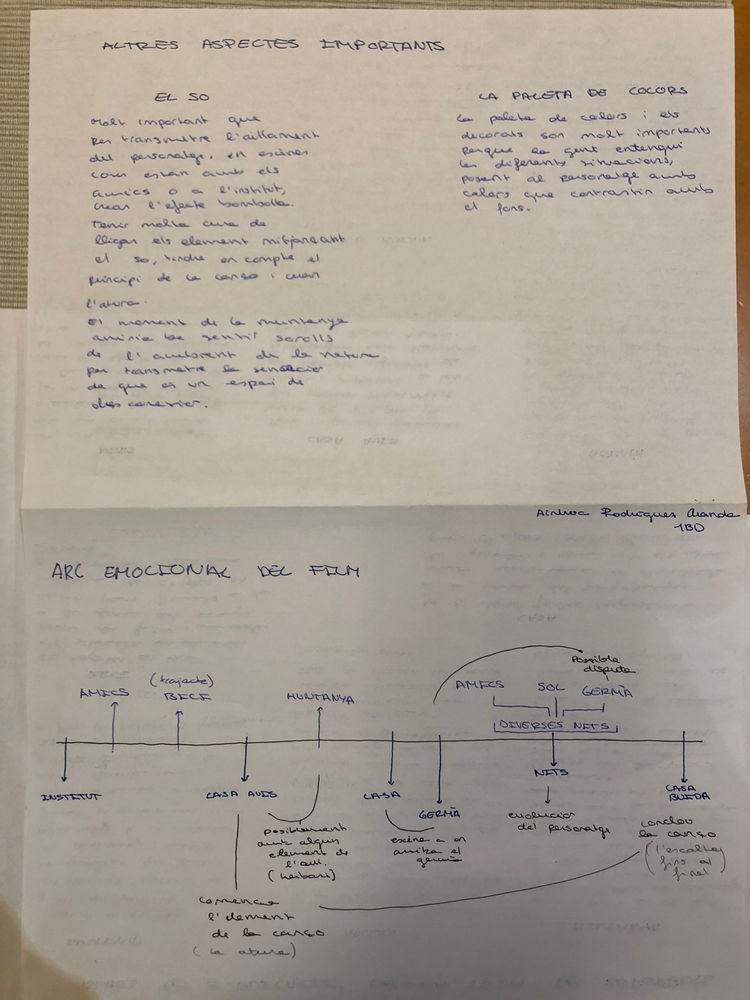 ALTRES ASPECTES IMPORTANTS
EL SO
Molt important que
per transmetre l'aïllament
del personatge, en escenes
com estan amb els
amics o a l'institut,
crear l'efecte bombolla.
Tenir molta cura de
lligar els element mitjançant
el so, tindre en compte el
principi de la canço i quan
l'atura.
El moment de la muntanya
aniria be sentir sorolls
de l'ambient de la natura
per transmetre la sensacior
de que es un espai de
desconexier.
LA PALETA DE COLORS
La paleta de colors i els
decorats son molt importants
perque la gent entengui
les diferents situacions,
posant al personatge amb
colors que contrastin amb
el fons.
Ainhoa Rodrigues Aranda
1BD
ARC EMOCIONAL DEL FILM
Possible
disputa
(trajecte)
AMICS
BICI
MUNTANYA
AMICS SOL GERMÀ
DIVERSES NITS
INSTITUT
CASA AVIS
CASA
GERMÀ
NITS
CASA
BUIDA
posiblement
amb algun
element de
l'avi.
(herbari)
escena a on
arriba el
germà
evolucior
del personatge
conclou
la canço
(l'escolta
fins al
final)
comença
l'element
de la canço
(la atura)